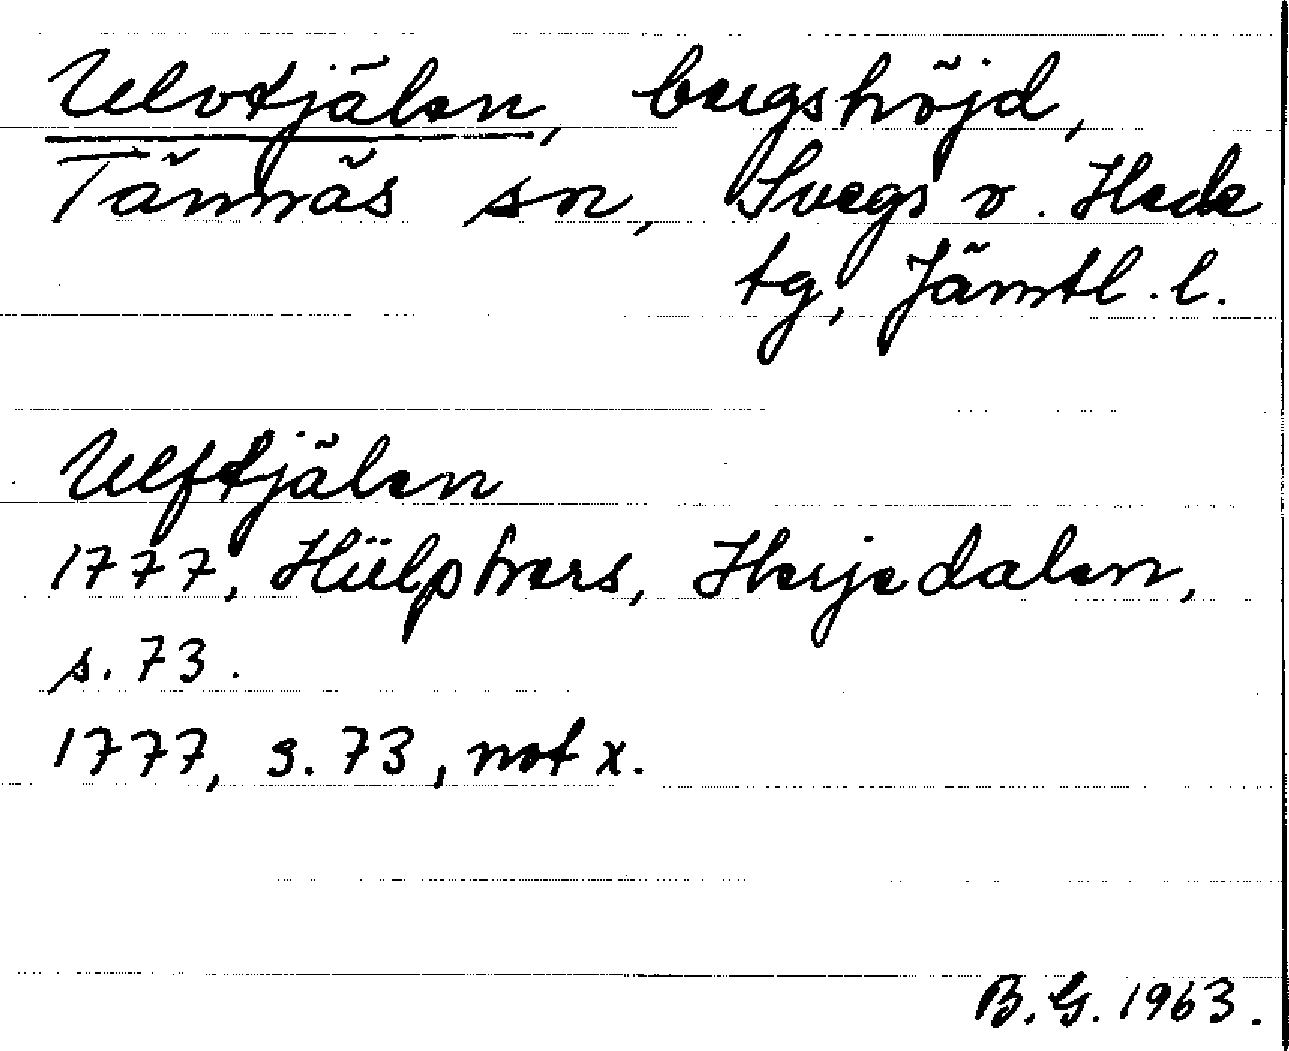 Ulvtjälen, bergshöjd,
Tännäs sn, Svegs o. Hede
tg, Jämtl. l.
Ulftjälen
1777, Hülphers, Herjedalen,
s. 73.
1777, s. 73, not x.
B. G. 1963.